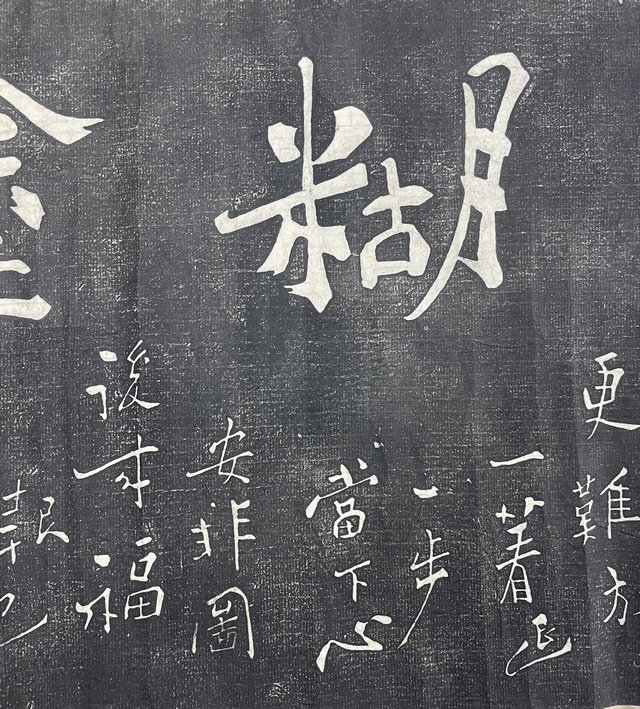 糊
更難
一著退
一步
當下心
安非圖
後来福
報